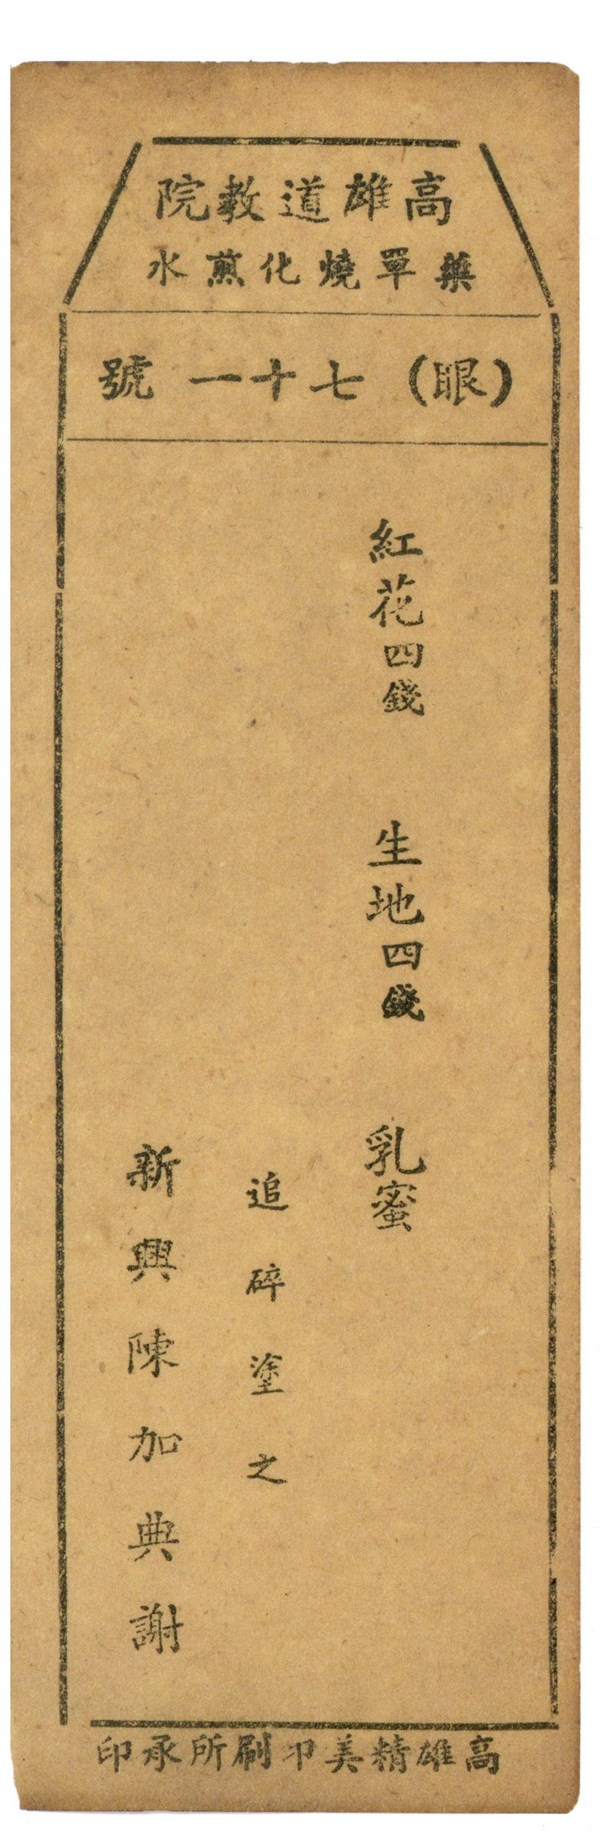 高雄道教院
藥單燒化煎水
(眼)七十一號
紅花四錢 生地四錢 乳蜜
追碎塗之
新興陳加典謝
高雄精美印刷所承印